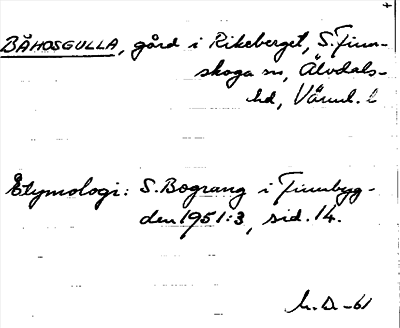 BÅHOSGULLA, gård i Rikeberget, S. Finn-
skoga sn, Älvdals-
hd, Värml. l
Etymologi: S. Bograng i Finnbyg-
den 1951:3, sid. 14.
h. D. -61